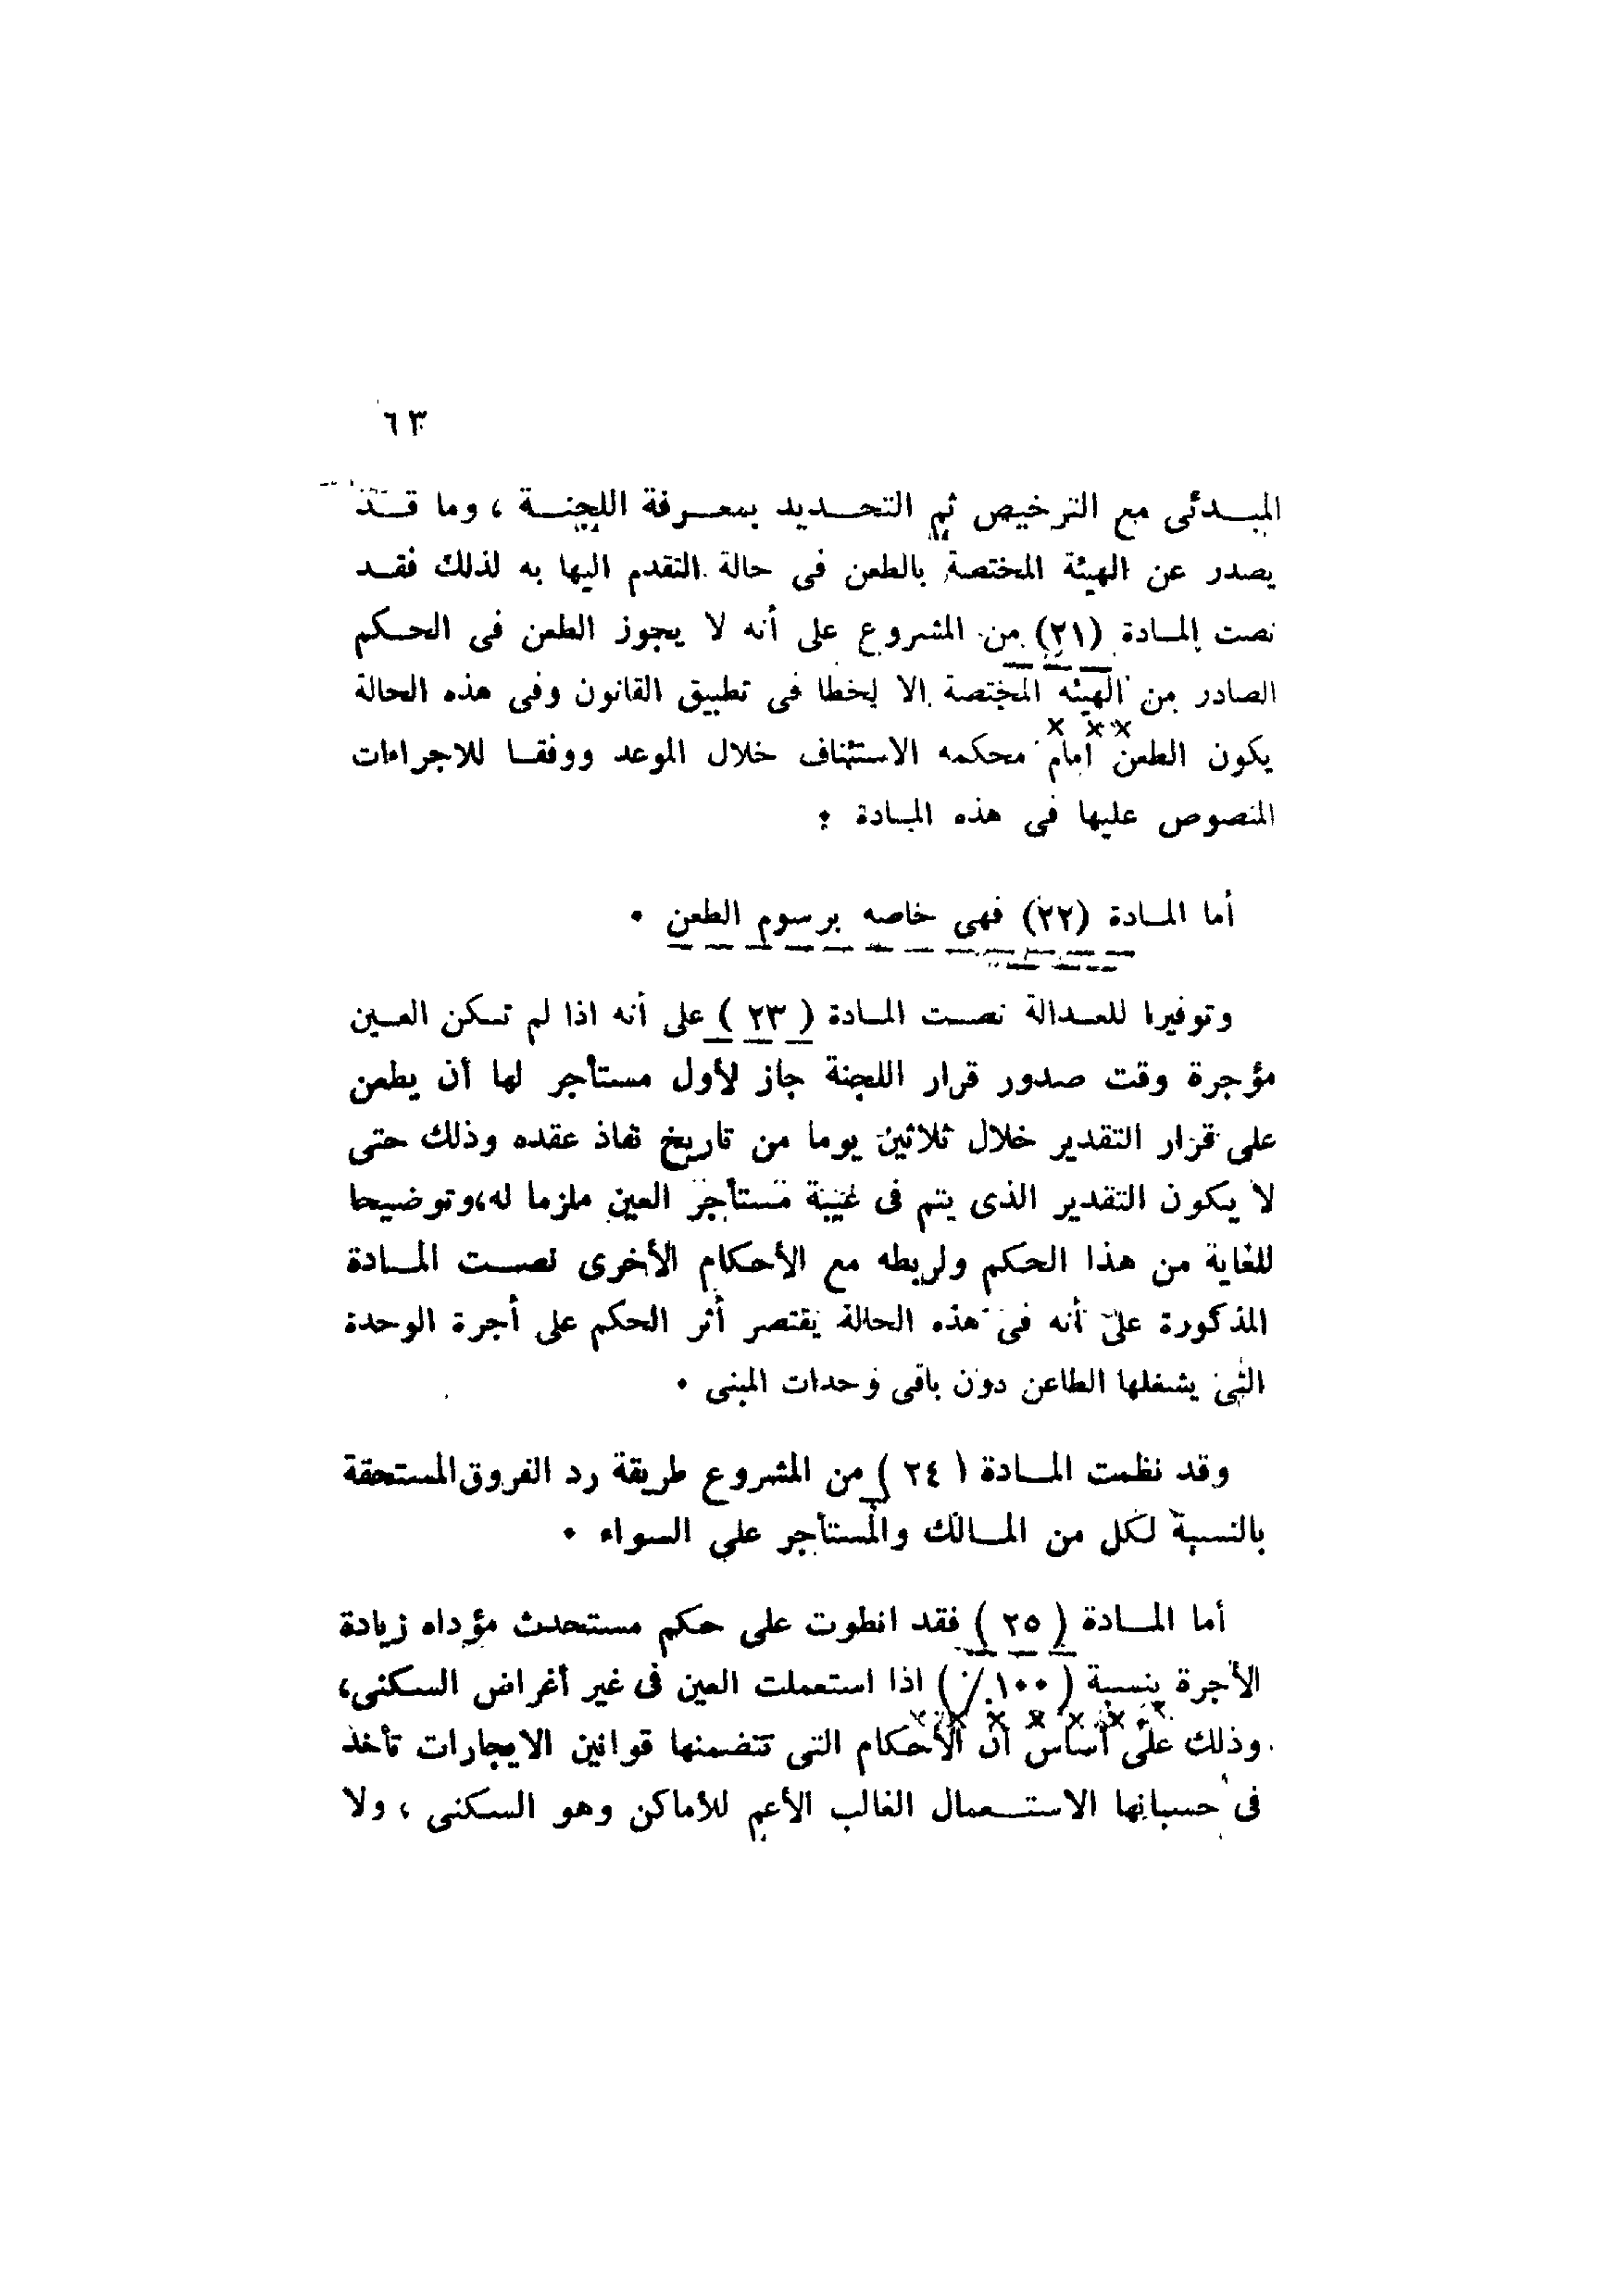 ٦٣
المبدئى مع الترخيص ثم التحديد بمعرفة اللجنة ، وما قد
يصدر عن الهيئة المختصة بالطعن فى حالة التقدم اليها به لذلك فقد
نصت المادة (٢١) من المشروع على أنه لا يجوز الطعن فى الحكم
الصادر من الهيئه المختصة الا لخطا فى تطبيق القانون وفى هذه الحالة
يكون الطعن امام محكمه الاستئناف خلال الموعد ووفقا للاجراءات
المنصوص عليها فى هذه المادة .
أما المادة (٢٢) فهى خاصه برسوم الطعن .
وتوفيرا للعدالة نصت المادة ( ٢٣ ) على أنه اذا لم تكن العين
مؤجرة وقت صدور قرار اللجنة جاز لأول مستأجر لها أن يطعن
على قرار التقدير خلال ثلاثين يوما من تاريخ نفاذ عقده وذلك حتى
لا يكون التقدير الذى يتم فى غيبة مستأجر العين ملزما له،وتوضيحا
للغاية من هذا الحكم ولربطه مع الأحكام الأخرى نصت المادة
المذكورة على أنه فى هذه الحالة يقتصر أثر الحكم على أجرة الوحدة
التى يشغلها الطاعن دون باقى وحدات المبنى .
وقد نظمت المادة ( ٢٤ ) من المشروع طريقة رد الفروق المستحقة
بالنسبة لكل من المالك والمستأجر على السواء .
أما المادة ( ٢٥ ) فقد انطوت على حكم مستحدث مؤداه زيادة
الأجرة بنسبة ( ١٠٠٪ ) اذا استعملت العين فى غير أغراض السكنى،
وذلك على أساس أن الأحكام التى تتضمنها قوانين الايجارات تأخذ
فى حسبانها الاستعمال الغالب الأعم للأماكن وهو السكنى ، ولا